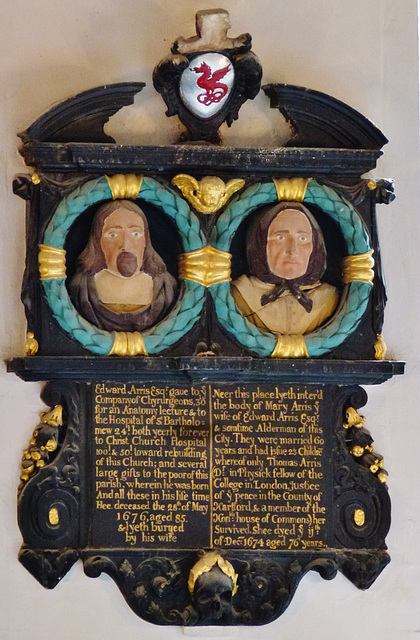 Edward Arris Esqr. gave to ye
Company of Chyrurgeons, 30l
for an Anatomy lecture & to
the Hospital of St Bartholo=
mew 24l both yearly forever
to Christ Church Hospital
100l & 50l toward rebuilding
of this Church; and several
large gifts to the poor of this
parish, wherein he was born
And all these in his life time
Hee deceased the 28th of May
1676 aged 85.
& lyeth buryed
by his wife
Neer this place lyeth interd
the body of Mary Arris ye
wife of Edward Arris Esqr
& somtime Alderman of this
City. They were married 60
years and had issue 23 Childre
whereof only Thomas Arris
Dr. in Physick fellow of the
College in London, Justice
of ye peace in the County of
Hartford, & a member of the
Honble house of Commons) her
Survived. Shee dyed ye
of Decr 1674 aged 76 years.